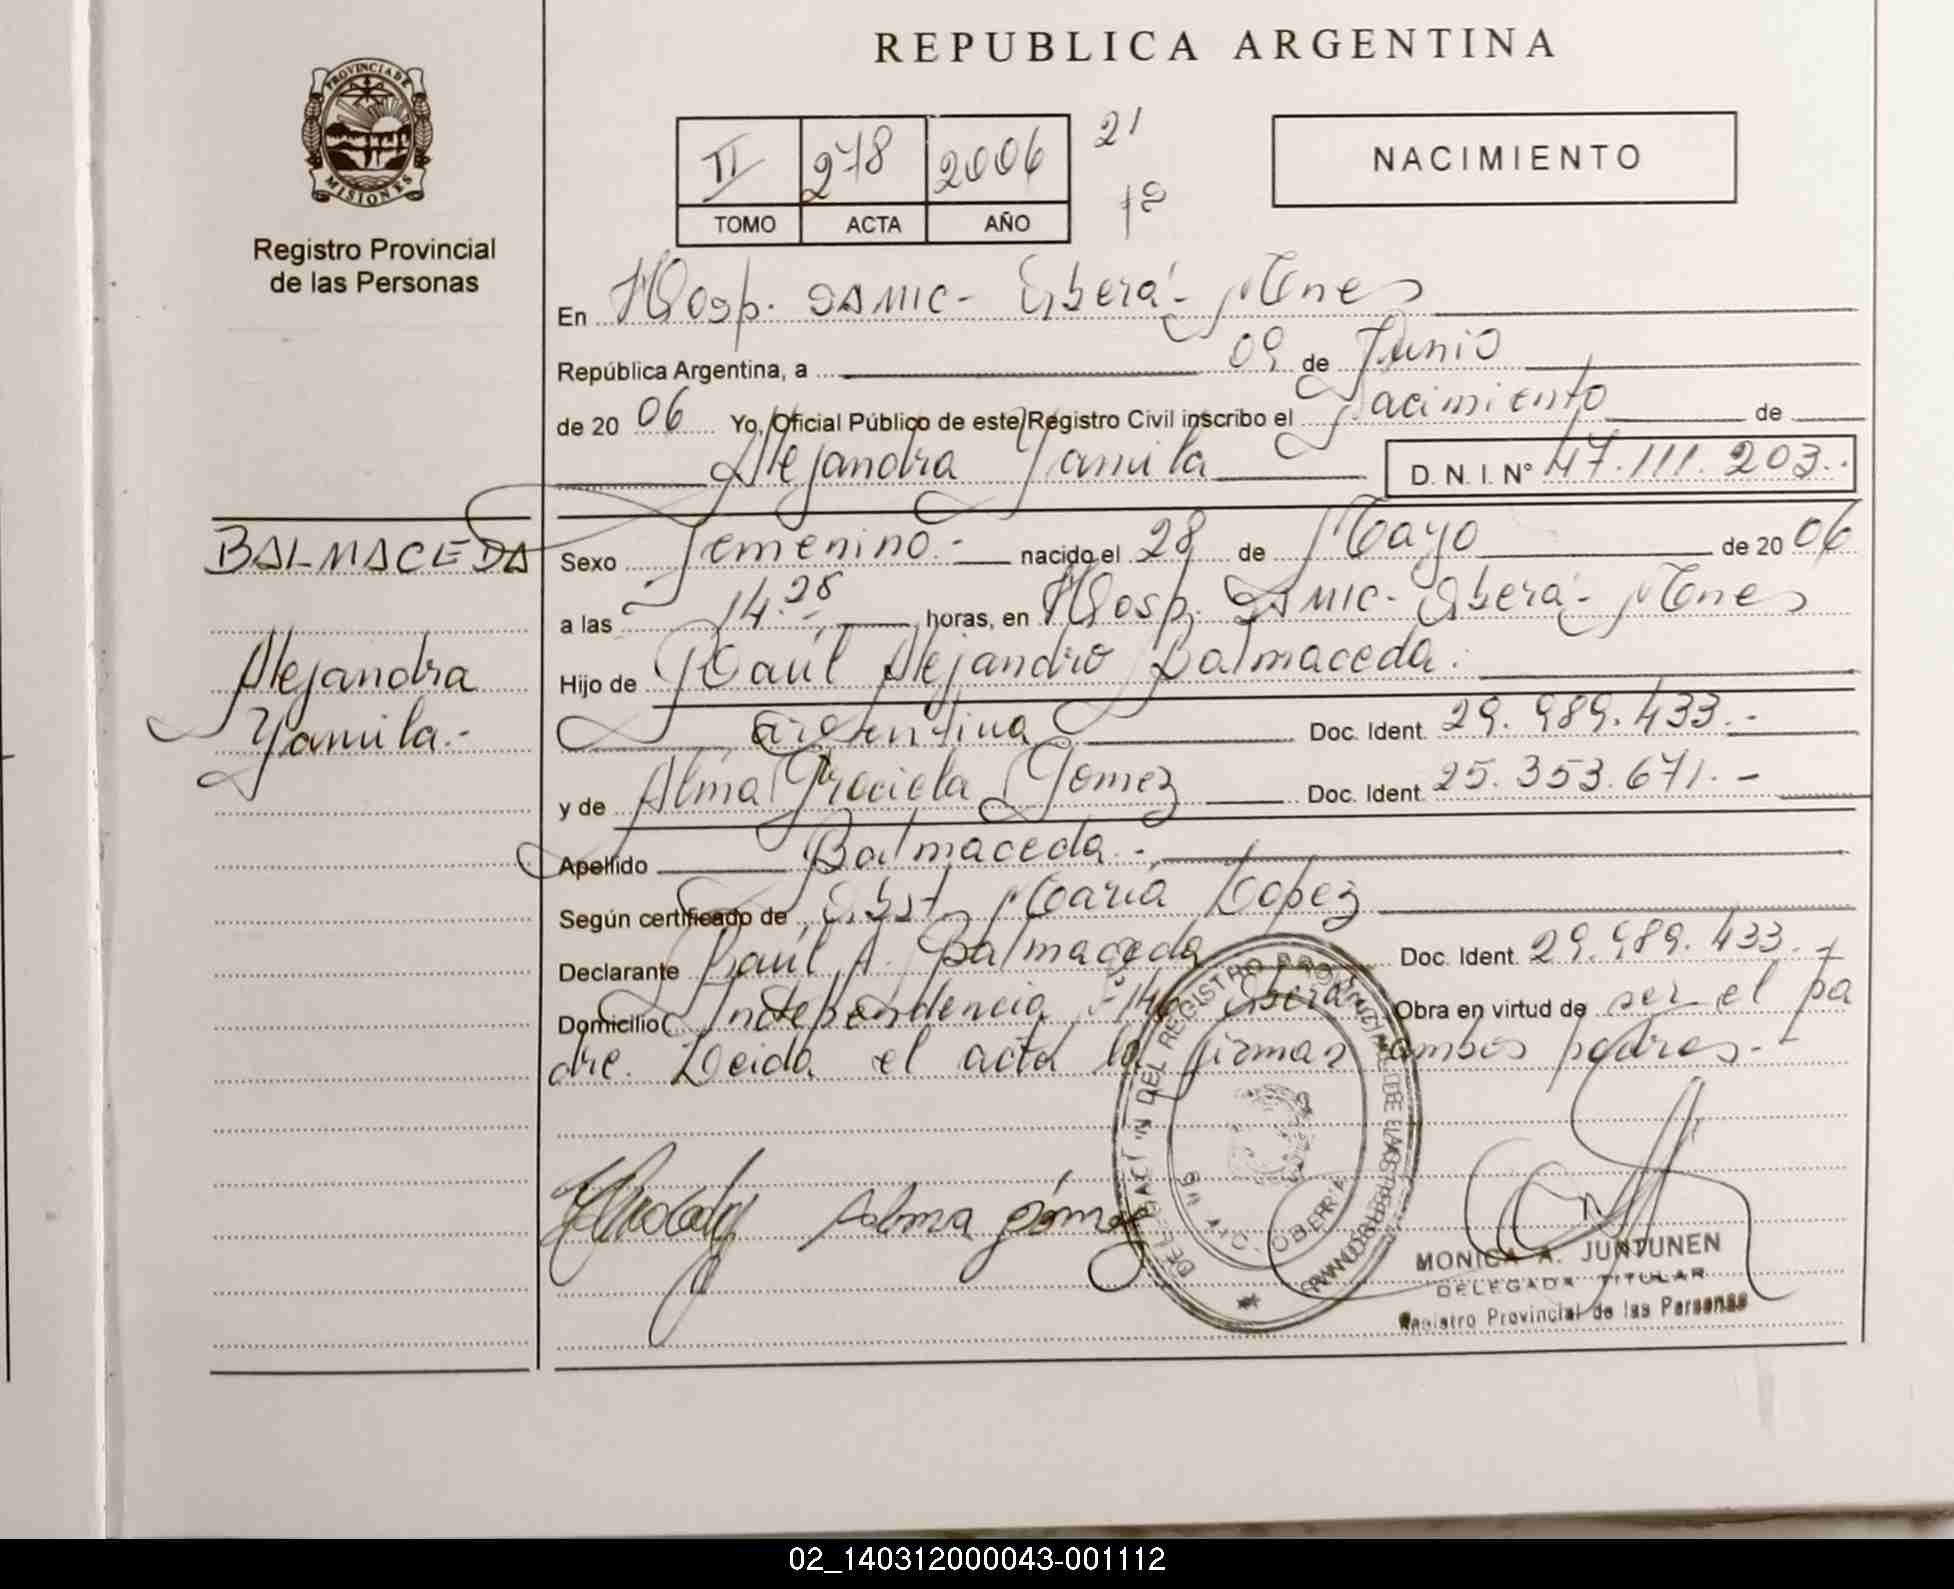 REPUBLICA ARGENTINA
PROVINCIA DE
MISIONES
Registro Provincial
de las Personas
II 278 2006
TOMO ACTA AÑO
21
1º
NACIMIENTO
En Hosp. SAMIC - Oberá - Mnes
República Argentina, a 09 de Junio
de 20 06 Yo, Oficial Público de este Registro Civil inscribo el Nacimiento de
Alejandra Yamila D. N. I. N° 47.111.203.
BALMACEDA
Alejandra
Yamila.-
Sexo Femenino.- nacido el 28 de Mayo de 20 06
a las 14.28 horas, en Hosp. SAMIC - Oberá - Mnes
Hijo de Raúl Alejandro Balmaceda.
Argentina Doc. Ident. 29.989.433.-
y de Alma Graciela Gomez Doc. Ident. 25.353.671.-
Apellido Balmaceda.-
Según certificado de Obst. María Lopez
Declarante Raúl A. Balmaceda Doc. Ident. 29.989.433.-
Domicilio Independencia 146 Oberá Obra en virtud de ser el pa
dre. Leida el acta la firman ambos padres.-
Alma Gómez
DEL REGISTRO PROVINCIAL DE LAS PERSONAS
OBERA
MONICA A. JUNTUNEN
DELEGADA TITULAR
Registro Provincial de las Personas
02_140312000043-001112